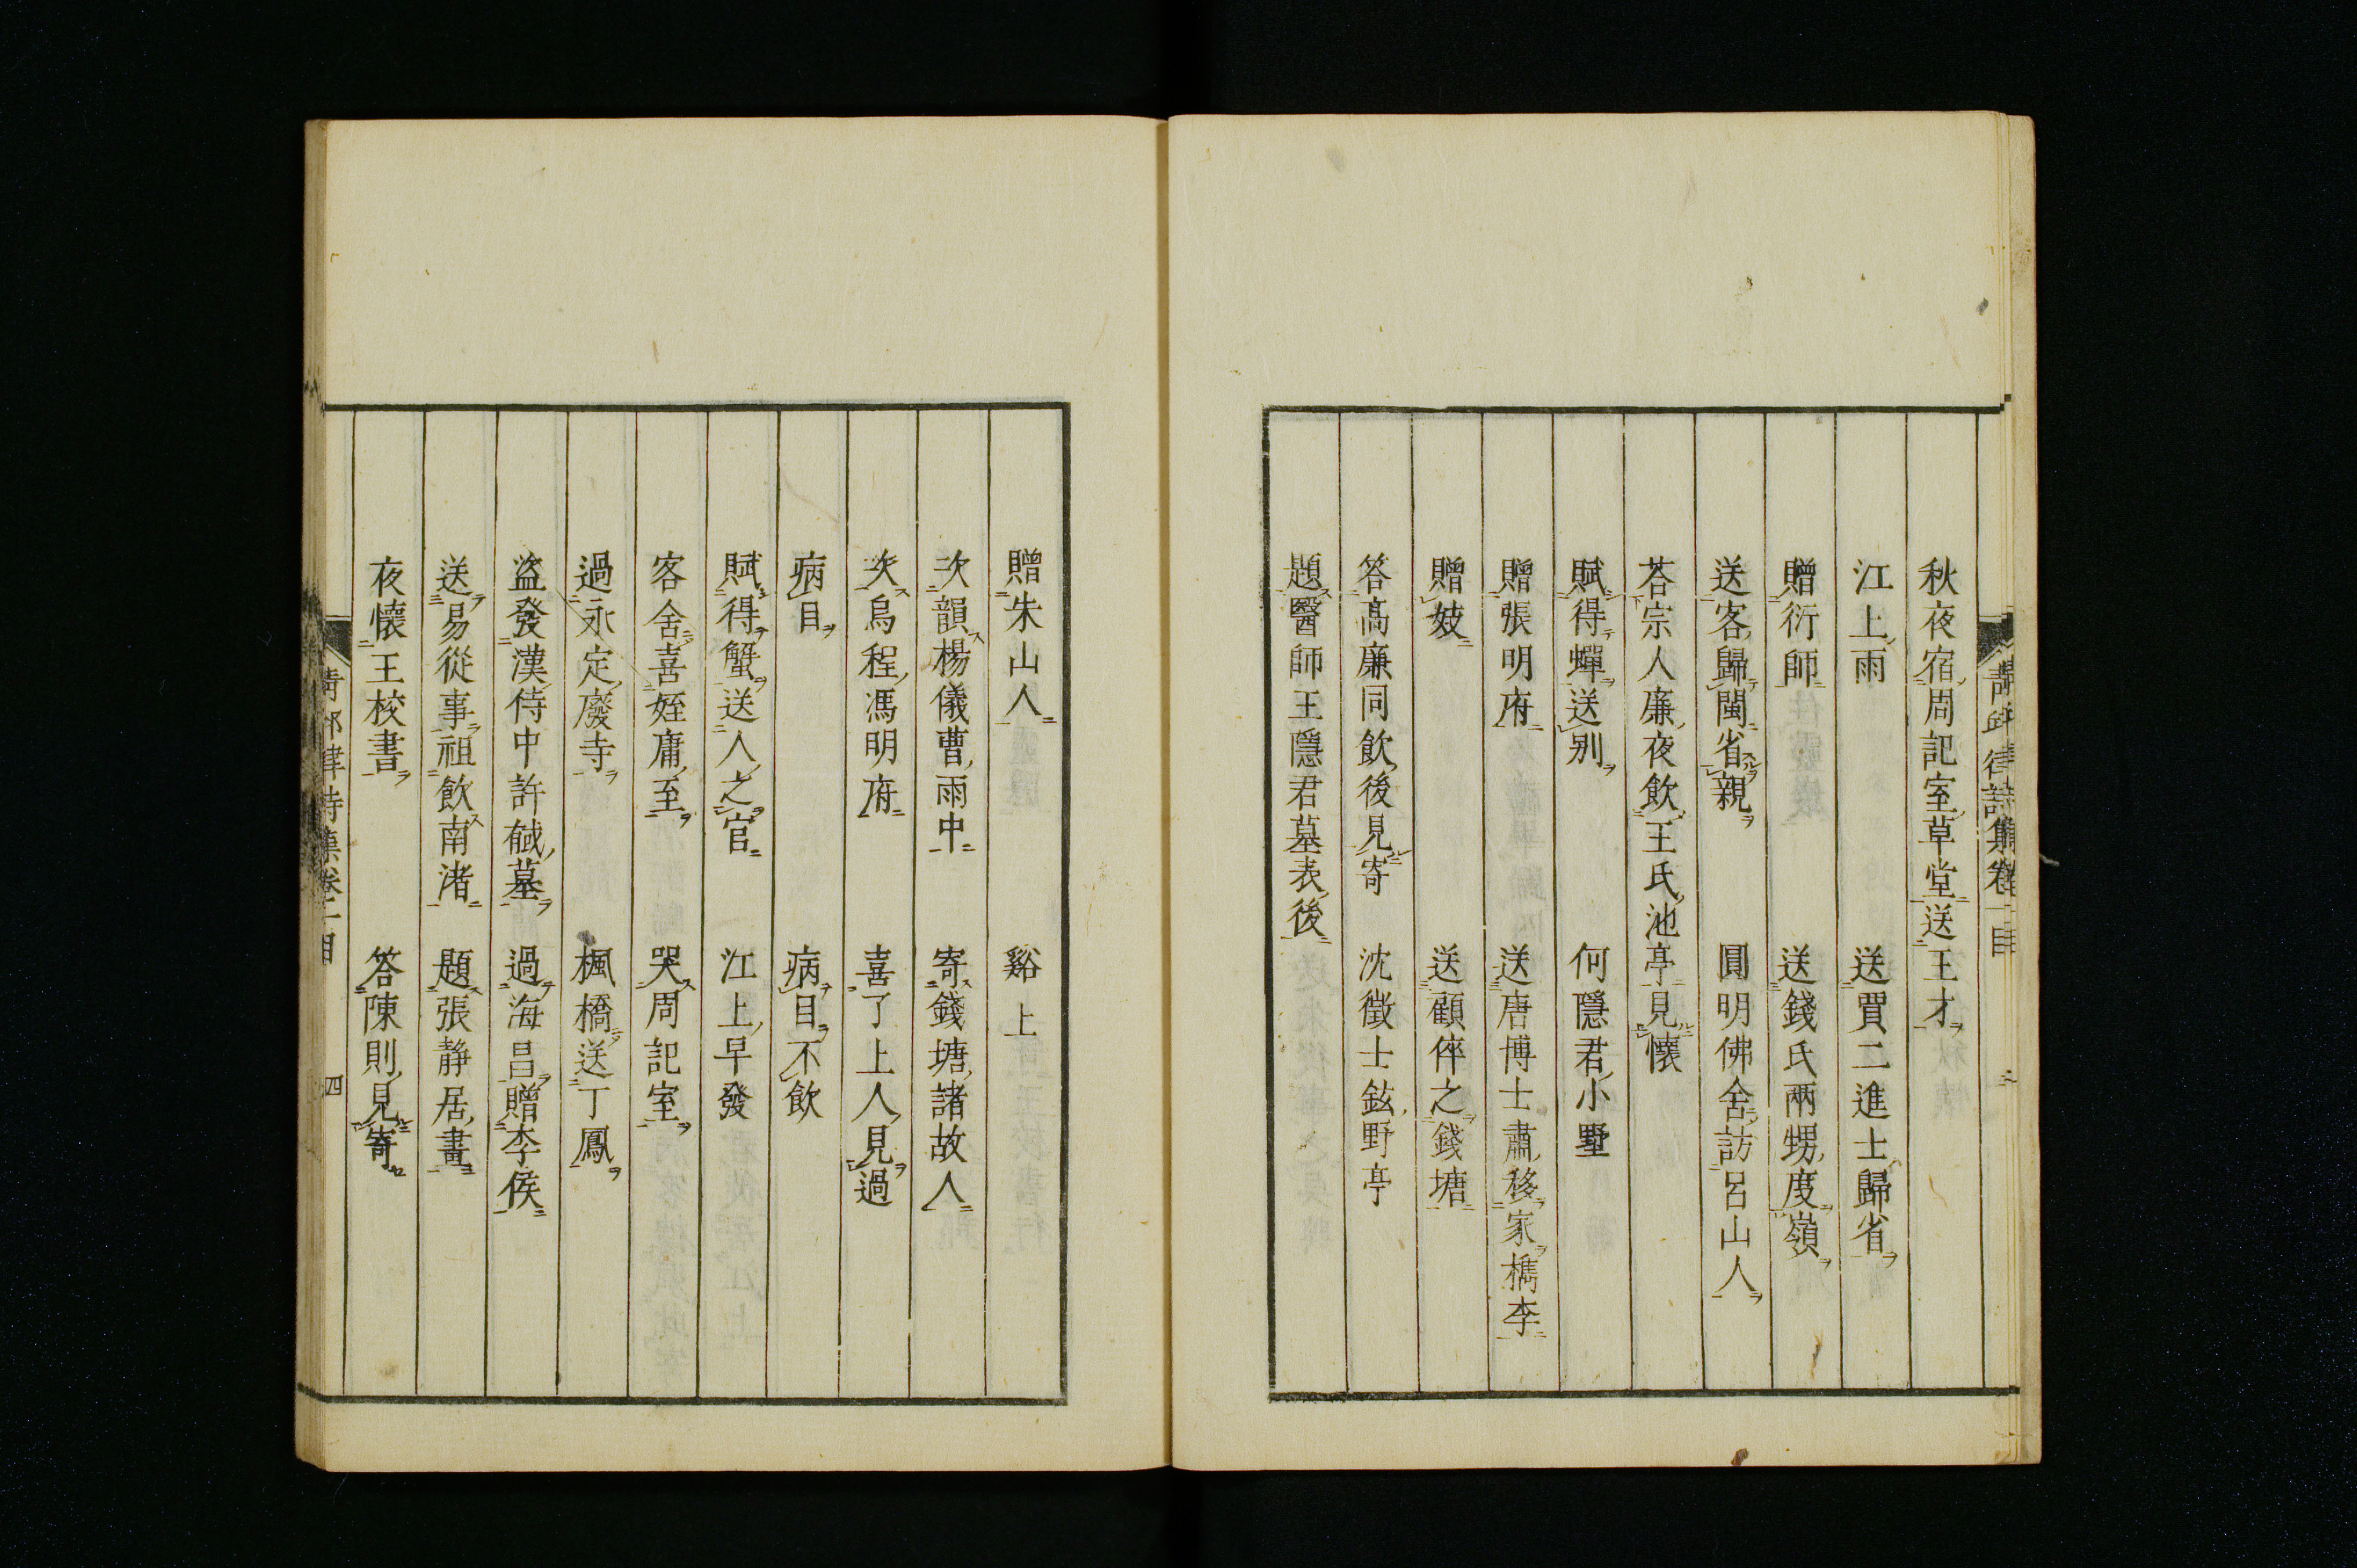 青邱律詩集卷二目
秋夜宿周記室草堂送王才
江上雨 送賈二進士歸省
贈衍師 送錢氏兩甥度嶺
送客歸閩省親 圓明佛舍訪呂山人
荅宗人廉夜飲王氏池亭見懷
賦得蟬送別 何隱君小墅
贈張明府 送唐博士肅移家檇李
贈妓 送顧倅之錢塘
答高廉同飲後見寄 沈徵士鉉野亭
題醫師王隱君墓表後
贈朱山人 谿上
次韻楊儀曹雨中 寄錢塘諸故人
次烏程馮明府 喜了上人見過
病目 病目不飲
賦得蟹送人之官 江上早發
客舍喜姪庸至 哭周記室
過永定廢寺 楓橋送丁鳳
盜發漢侍中許馘墓 過海昌贈李侯
送易從事祖飲南渚 題張靜居畫
夜懷王校書 答陳則見寄
青邱律詩集卷二目 四